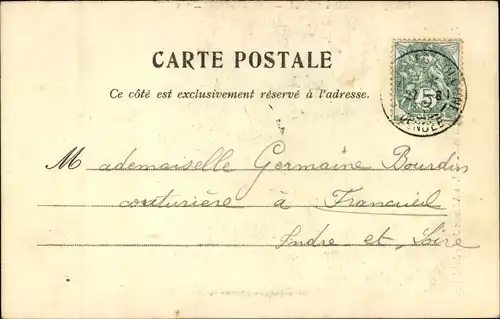 CARTE POSTALE
Ce côté est exclusivement réservé à l'adresse.
5
VENDÉE
Mademoiselle Germaine Bourdin
couturière à Francueil
Indre et Loire